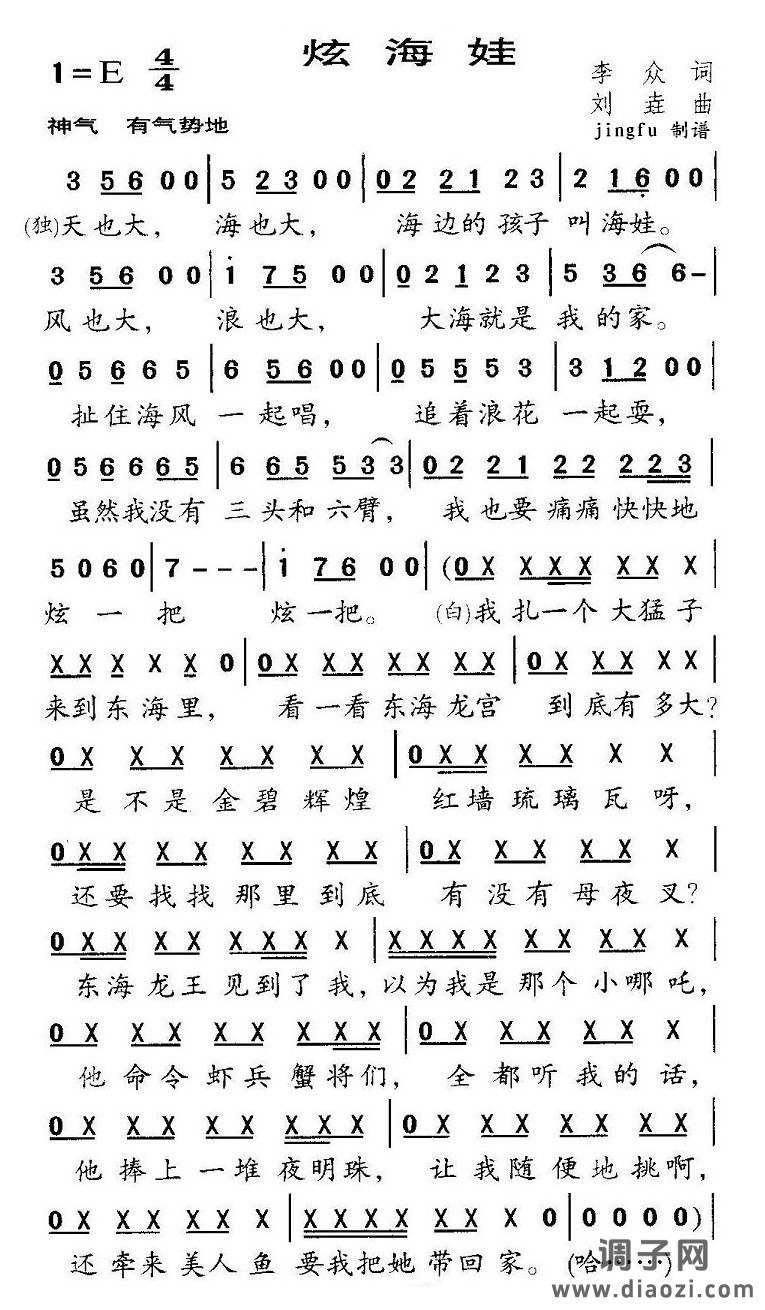 炫海娃
1=E 4/4
李众 词
刘垚 曲
神气 有气势地
jingfu 制谱
3 5 6 0 0 | 5 2 3 0 0 | 0 2 2 1 2 3 | 2 1 6 0 0 |
(独)天也大, 海也大, 海边的孩子叫海娃。
3 5 6 0 0 | 1 7 5 0 0 | 0 2 1 2 3 | 5 3 6 6 – |
风也大, 浪也大, 大海就是我的家。
0 5 6 6 5 | 6 5 6 0 0 | 0 5 5 5 3 | 3 1 2 0 0 |
扯住海风一起唱, 追着浪花一起耍,
0 5 6 6 6 5 | 6 6 5 5 3 3 | 0 2 2 1 2 2 2 2 2 3 |
虽然我没有三头和六臂, 我也要痛痛快快地
5 0 6 0 | 7 - - - | 1 7 6 0 0 | (0 X X X X X X
炫一把 炫一把。 (白)我扎一个大猛子
X X X X X 0 | 0 X X X X X X X | 0 X X X X X |
来到东海里, 看一看东海龙宫 到底有多大?
0 X X X X X X X | 0 X X X X X X |
是不是金碧辉煌 红墙琉璃瓦呀,
0 X X X X X X X X | 0 X X X X X X |
还要找找那里到底 有没有母夜叉?
0 X X X X X X X X | X X X X X X X X X X |
东海龙王见到了我, 以为我是那个小哪吒,
0 X X X X X X X X | 0 X X X X X X |
他命令虾兵蟹将们, 全都听我的话,
0 X X X X X X X X | 0 X X X X X X X |
他捧上一堆夜明珠, 让我随便地挑啊,
0 X X X X X X | X X X X X X X 0 | 0 0 0 0 )
还牵来美人鱼 要我把她带回家。 (哈……)
调子网
www.diaozi.com